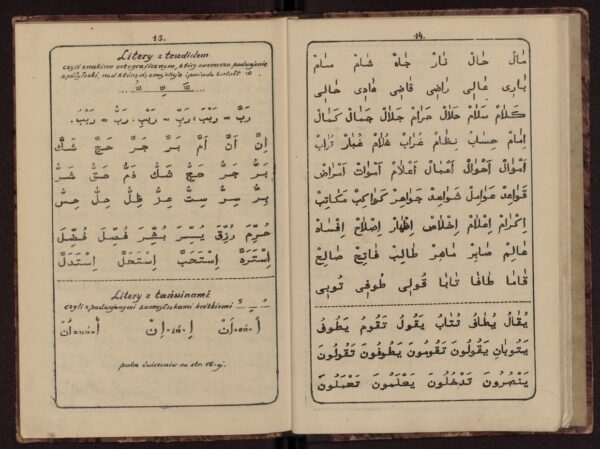 14.
مَالَ حَالَ نَارَ جَاهَ شَامَ سَامَ
بَارِى عَالِى رَاضِى قَاضِى هَادِى خَالِى
كَلَامْ سَلَامْ حَلَالْ حَرَامْ جَلَالْ جَمَالْ كَمَالْ
اِمَامْ حِسَابْ نِظَامْ غُرَابْ غُلَامْ غُبَارْ تُرَابْ
اَمْوَالْ اَحْوَالْ اَعْمَالْ اَعْلَامْ اَمْوَاتْ اَمْرَاضْ
قَوَاعِدْ عَوَامِلْ شَوَاهِدْ جَوَاهِرْ كَوَاكِبْ مَكَاتِبْ
اِكْرَامْ اِعْلَامْ اِخْلَاصْ اِظْهَارْ اِصْلَاحْ
عَالِمْ صَابِرْ مَاهِرْ طَالِبْ فَاتِحْ صَالِحْ
قَامَا طَافَا تَابَا قُولِى طُوفِى تُوبِى
يُقَالُ يُطَافُ يُتَابُ يَقُولُ تَقُومُ يَطُوفُ
يَتُوبَانِ يَقُولُونَ تَقُومُونَ يَطُوفُونَ تَقُولُونَ
يَنْصُرُونَ تَدْخُلُونَ يَعْلَمُونَ تَعْمَلُونَ
15.
Litery z teszdidem
czyli znakiem ortograficznym, który zaznacza podwojenie
spółgłoski, nad którą się znajduje i posiada kształt ّ
رَبَّ = رَبْبَ، رَبِّ = رَبْبِ، رَبُّ = رَبْبُ.
اِنَّ اَنَّ اَمَّ بَرَّ جَرَّ حَجَّ شَكَّ
بَرُّ جَرُّ حَجُّ شَكُّ ذَمُّ حَقُّ شَرُّ
بِرُّ سِرُّ سِتُّ عِدُّ ظِلُّ حِلُّ حِسُّ
حُرِّمَ رُزِّقَ يُسِّرَ بُشِّرَ فُصِّلَ فُضِّلَ
اِسْتَرَدَّ اِسْتَحَبَّ اِسْتَحَلَّ اِسْتَدَلَّ
Litery z tańwinami
czyli z podwojonymi samogłoskami krótkiemi
اً=en=اَنْ اٍ=in=اِنْ اٌ=un=اُنْ